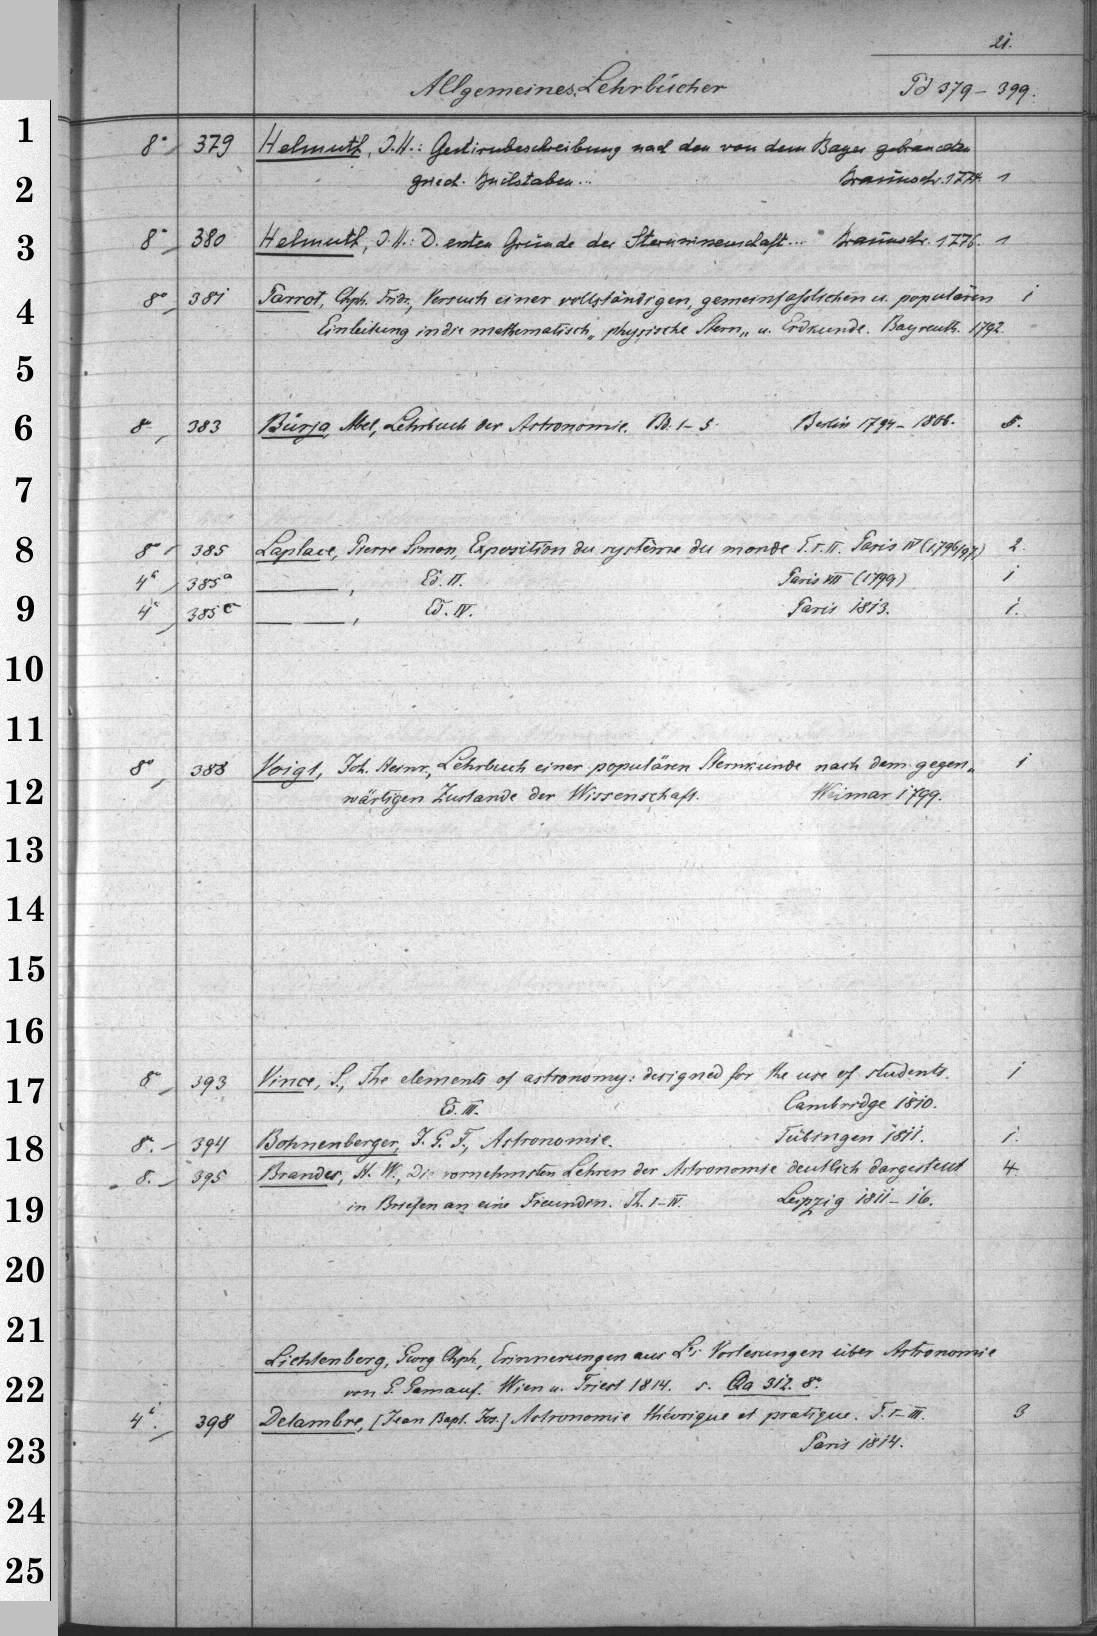 21.
Allgemeines, Lehrbücher Pd 379 – 399.
1
8° 379 Helmuth, J. H.: Gestirnbeschreibung nach den von dem Bayer
2
griech. Braunschw. 1774. 1
3
8° 380 Helmuth, J. H.: D. ersten Gründe der Sternwissenschaft... Braunschw. 1776. 1
4
8° 381 Parrot, Chph. Fridr., Versuch einer vollständigen, gemeinfasslichen u. populären 1
Einleitung in die mathematisch„ physische Stern„ u. Erdkunde. Bayreuth. 1792.
5
6
8° 383 Bürja, Abel, Lehrbuch der Astronomie. Bd. 1–5. Berlin 1794–1806. 5.
7
8
8° 385 Laplace, Pierre Simon, Exposition du système du monde T. I. II. Paris IV (1796/97) 2.
4° 385a ———, Ed. II. Paris VII (1799) 1
9
4° 385c — —, Ed. IV. Paris 1813. 1.
10
11
8° 388 Voigt, Joh. Heinr., Lehrbuch einer populären Sternkunde nach dem gegen„ 1
12
wärtigen Zustande der Wissenschaft. Weimar 1799.
13
14
15
16
17
8° 393 Vince, S., The elements of astronomy: designed for the use of students. 1
Ed. III. Cambridge 1810.
18
8° 394 Bohnenberger, J. G. F., Astronomie. Tübingen 1811. 1.
8. 395 Brandes, H. W., Die vornehmsten Lehren der Astronomie deutlich dargestellt 4
19
in Briefen an eine Freundin. Th. I–IV. Leipzig 1811–16.
20
21
Lichtenberg, Georg Chph., Erinnerungen aus L's Vorlesungen über Astronomie
22
von G. Gamauf. Wien u. Triest 1814. s. Qa 312. 8°.
4°. 398 Delambre, [Jean Bapt. Jos.] Astronomie théorique et pratique. T. I–III. 3
23
Paris 1814.
24
25